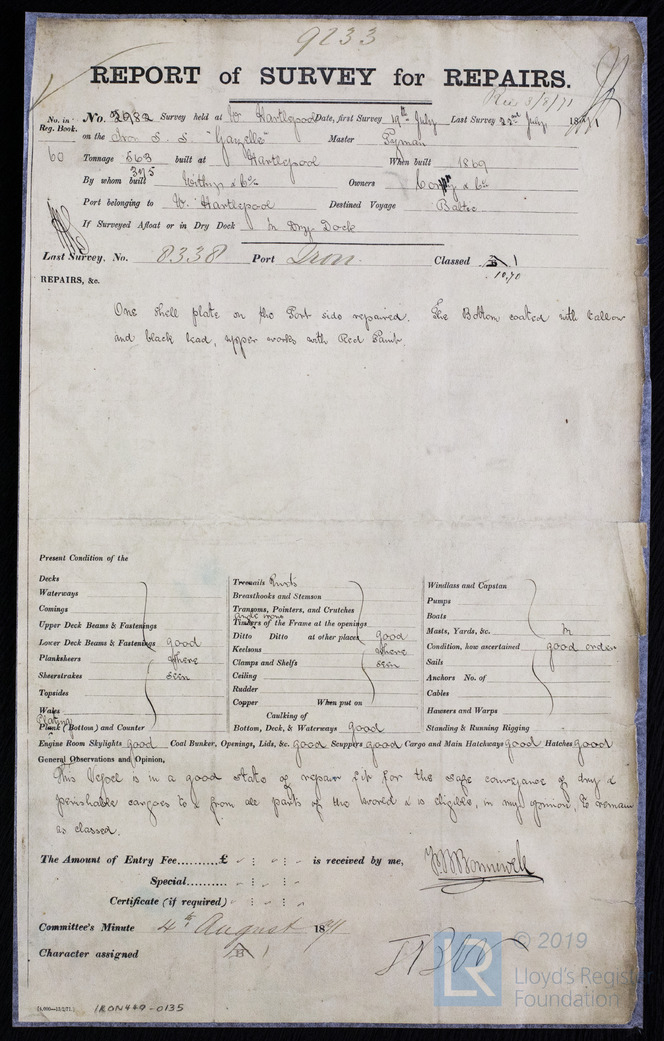 9233
REPORT of SURVEY for REPAIRS.
Rec 3/8/71
No. in Reg. Book. No. Survey held at W. Hartlepool Date, first Survey 19th July Last Survey 22nd July 1871
on the Iron S. S. "Gazelle" Master Pyman
60 Tonnage 563 built at Hartlepool When built 1869
395
By whom built Withy & Co. Owners & Co.
Port belonging to W. Hartlepool Destined Voyage Baltic
If Surveyed Afloat or in Dry Dock In Dry Dock
Last Survey, No. 8338 Port Iron. Classed A 1
10,70
REPAIRS, &c.
One shell plate on the Port side repaired. The Bottom coated with tallow
and black lead, upper works with Red Paint.
Present Condition of the
Decks
Waterways
Comings
Upper Deck Beams & Fastenings
Lower Deck Beams & Fastenings good
Planksheers where
Sheerstrakes seen
Topsides
Wales
Plating
Plank (Bottom) and Counter
Treenails Rivets
Breasthooks and Stemson
Transoms, Pointers, and Crutches
Timbers of the Frame at the openings
Ditto Ditto at other places good
Keelsons where
Clamps and Shelfs seen
Ceiling
Rudder
Copper When put on
Caulking of
Bottom, Deck, & Waterways good
Windlass and Capstan
Pumps
Boats
Masts, Yards, &c. In
Condition, how ascertained good order
Sails
Anchors No. of
Cables
Hawsers and Warps
Standing & Running Rigging
Engine Room Skylights good Coal Bunker, Openings, Lids, &c. good Scuppers good Cargo and Main Hatchways good Hatches good
General Observations and Opinion,
This Vessel is in a good state of repair fit for the safe conveyance of dry &
perishable cargoes to & from all parts of the World & is eligible, in my opinion, to remain
as classed.
The Amount of Entry Fee..........£ : : is received by me,
Special.......... : :
Certificate (if required) : :
Committee's Minute 4th August 1871
Character assigned A 1
IRON449-0135
© 2019
LR
Lloyd's Register
Foundation